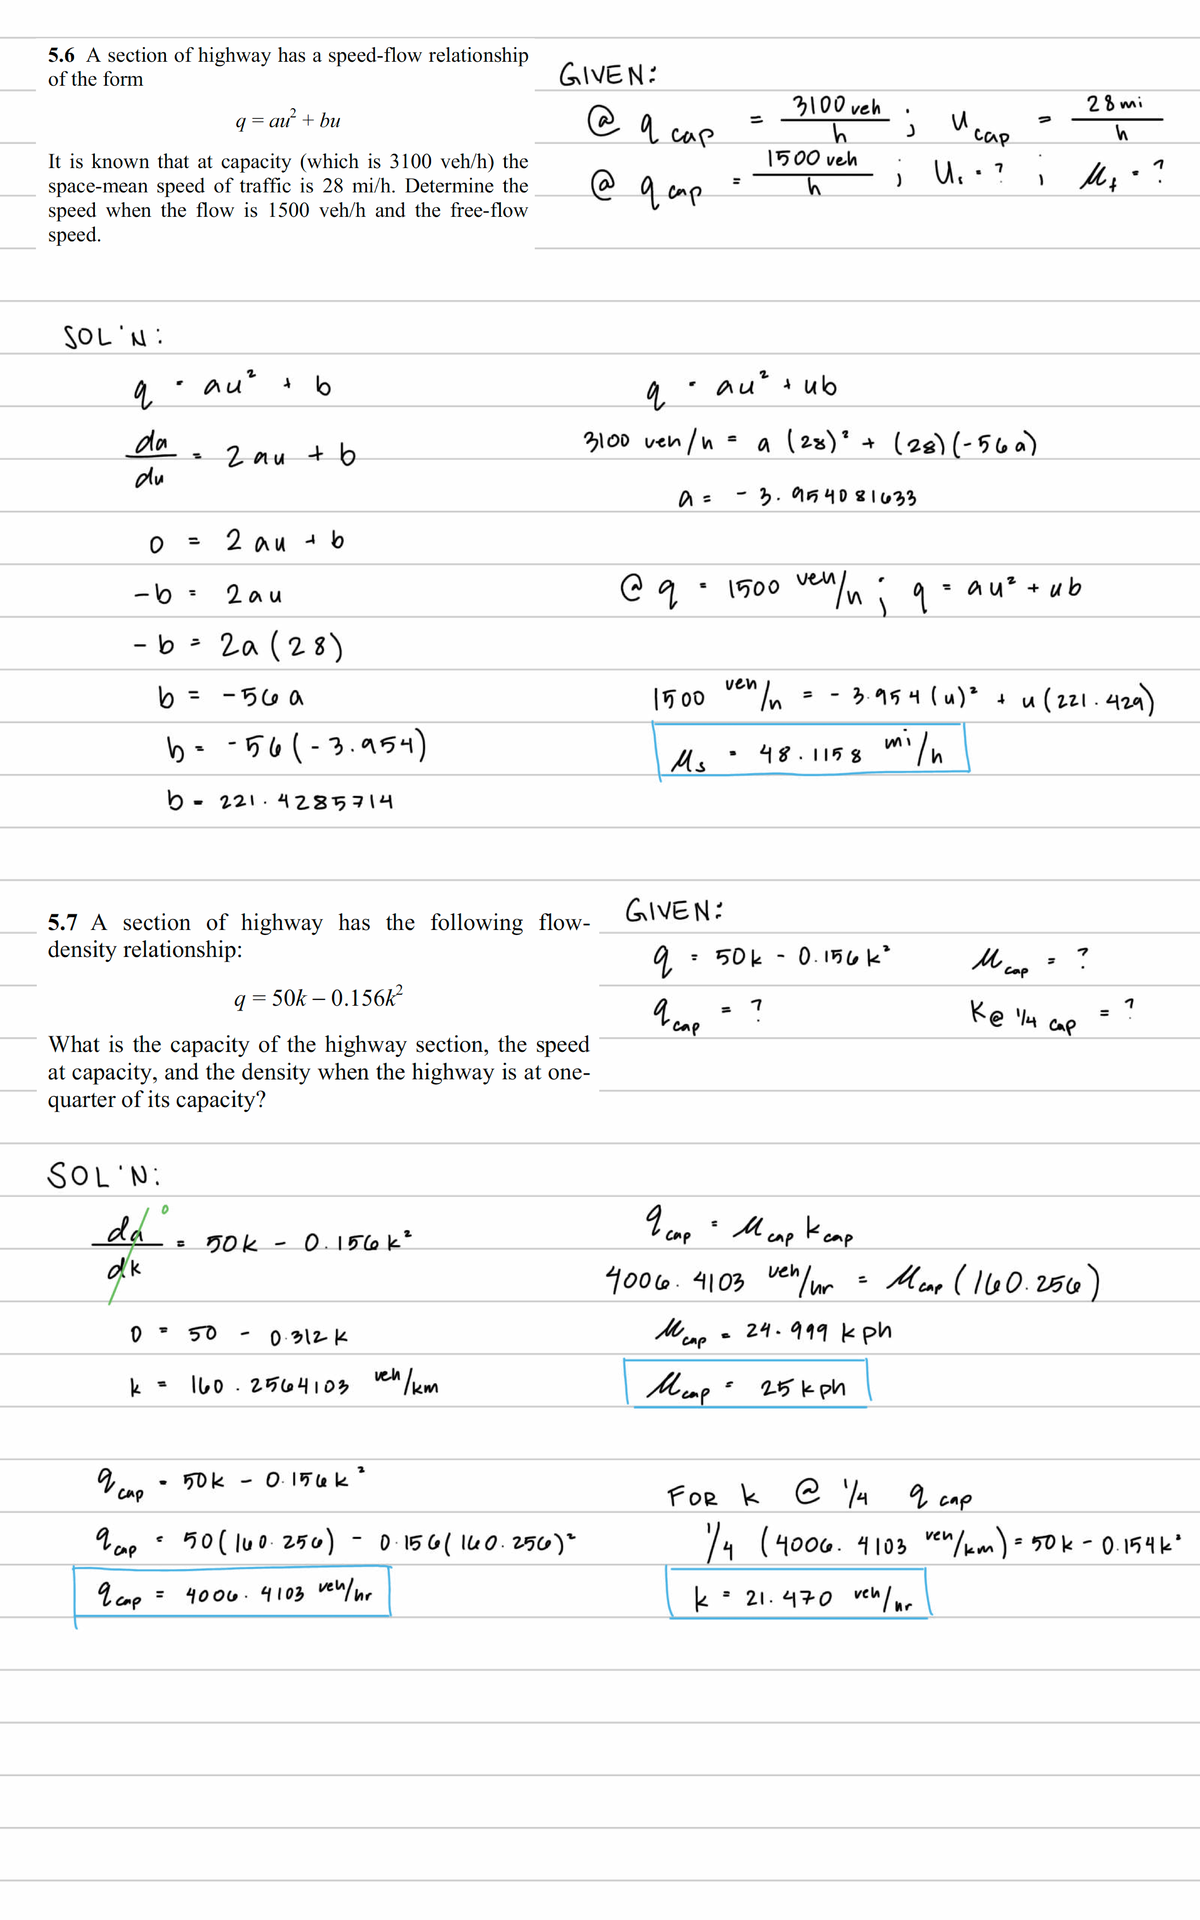 5.6 A section of highway has a speed-flow relationship
of the form
q = au² + bu
It is known that at capacity (which is 3100 veh/h) the
space-mean speed of traffic is 28 mi/h. Determine the
speed when the flow is 1500 veh/h and the free-flow
speed.
GIVEN:
@ q cap = 3100 veh/h ; u cap = 28 mi/h
@ q cap = 1500 veh/h ; u₁ = ? ; μf = ?
SOL'N:
q = au² + b
da/du = 2 au + b
0 = 2 au + b
-b = 2au
-b = 2a (28)
b = -56 a
b = -56 (-3.954)
b = 221.4285714
q = au² + ub
3100 veh/h = a (28)² + (28)(-56a)
a = -3.954081633
@ q = 1500 veh/h ; q = au² + ub
1500 veh/h = -3.954 (u)² + u (221.429)
μs = 48.1158 mi/h
5.7 A section of highway has the following flow-
density relationship:
q = 50k – 0.156k²
What is the capacity of the highway section, the speed
at capacity, and the density when the highway is at one-
quarter of its capacity?
GIVEN:
q = 50k - 0.156k² μcap = ?
qcap = ? k@ 1/4 cap = ?
SOL'N:
dq/dk 0 = 50k - 0.156k²
0 = 50 - 0.312 k
k = 160.2564103 veh/km
qcap = 50k - 0.156k²
qcap = 50(160.256) - 0.156(160.256)²
qcap = 4006.4103 veh/hr
qcap = μcap kcap
4006.4103 veh/hr = μcap (160.256)
μcap = 24.999 kph
μcap = 25 kph
FOR k @ 1/4 q cap
1/4 (4006.4103 veh/km) = 50k - 0.154k²
k = 21.470 veh/hr